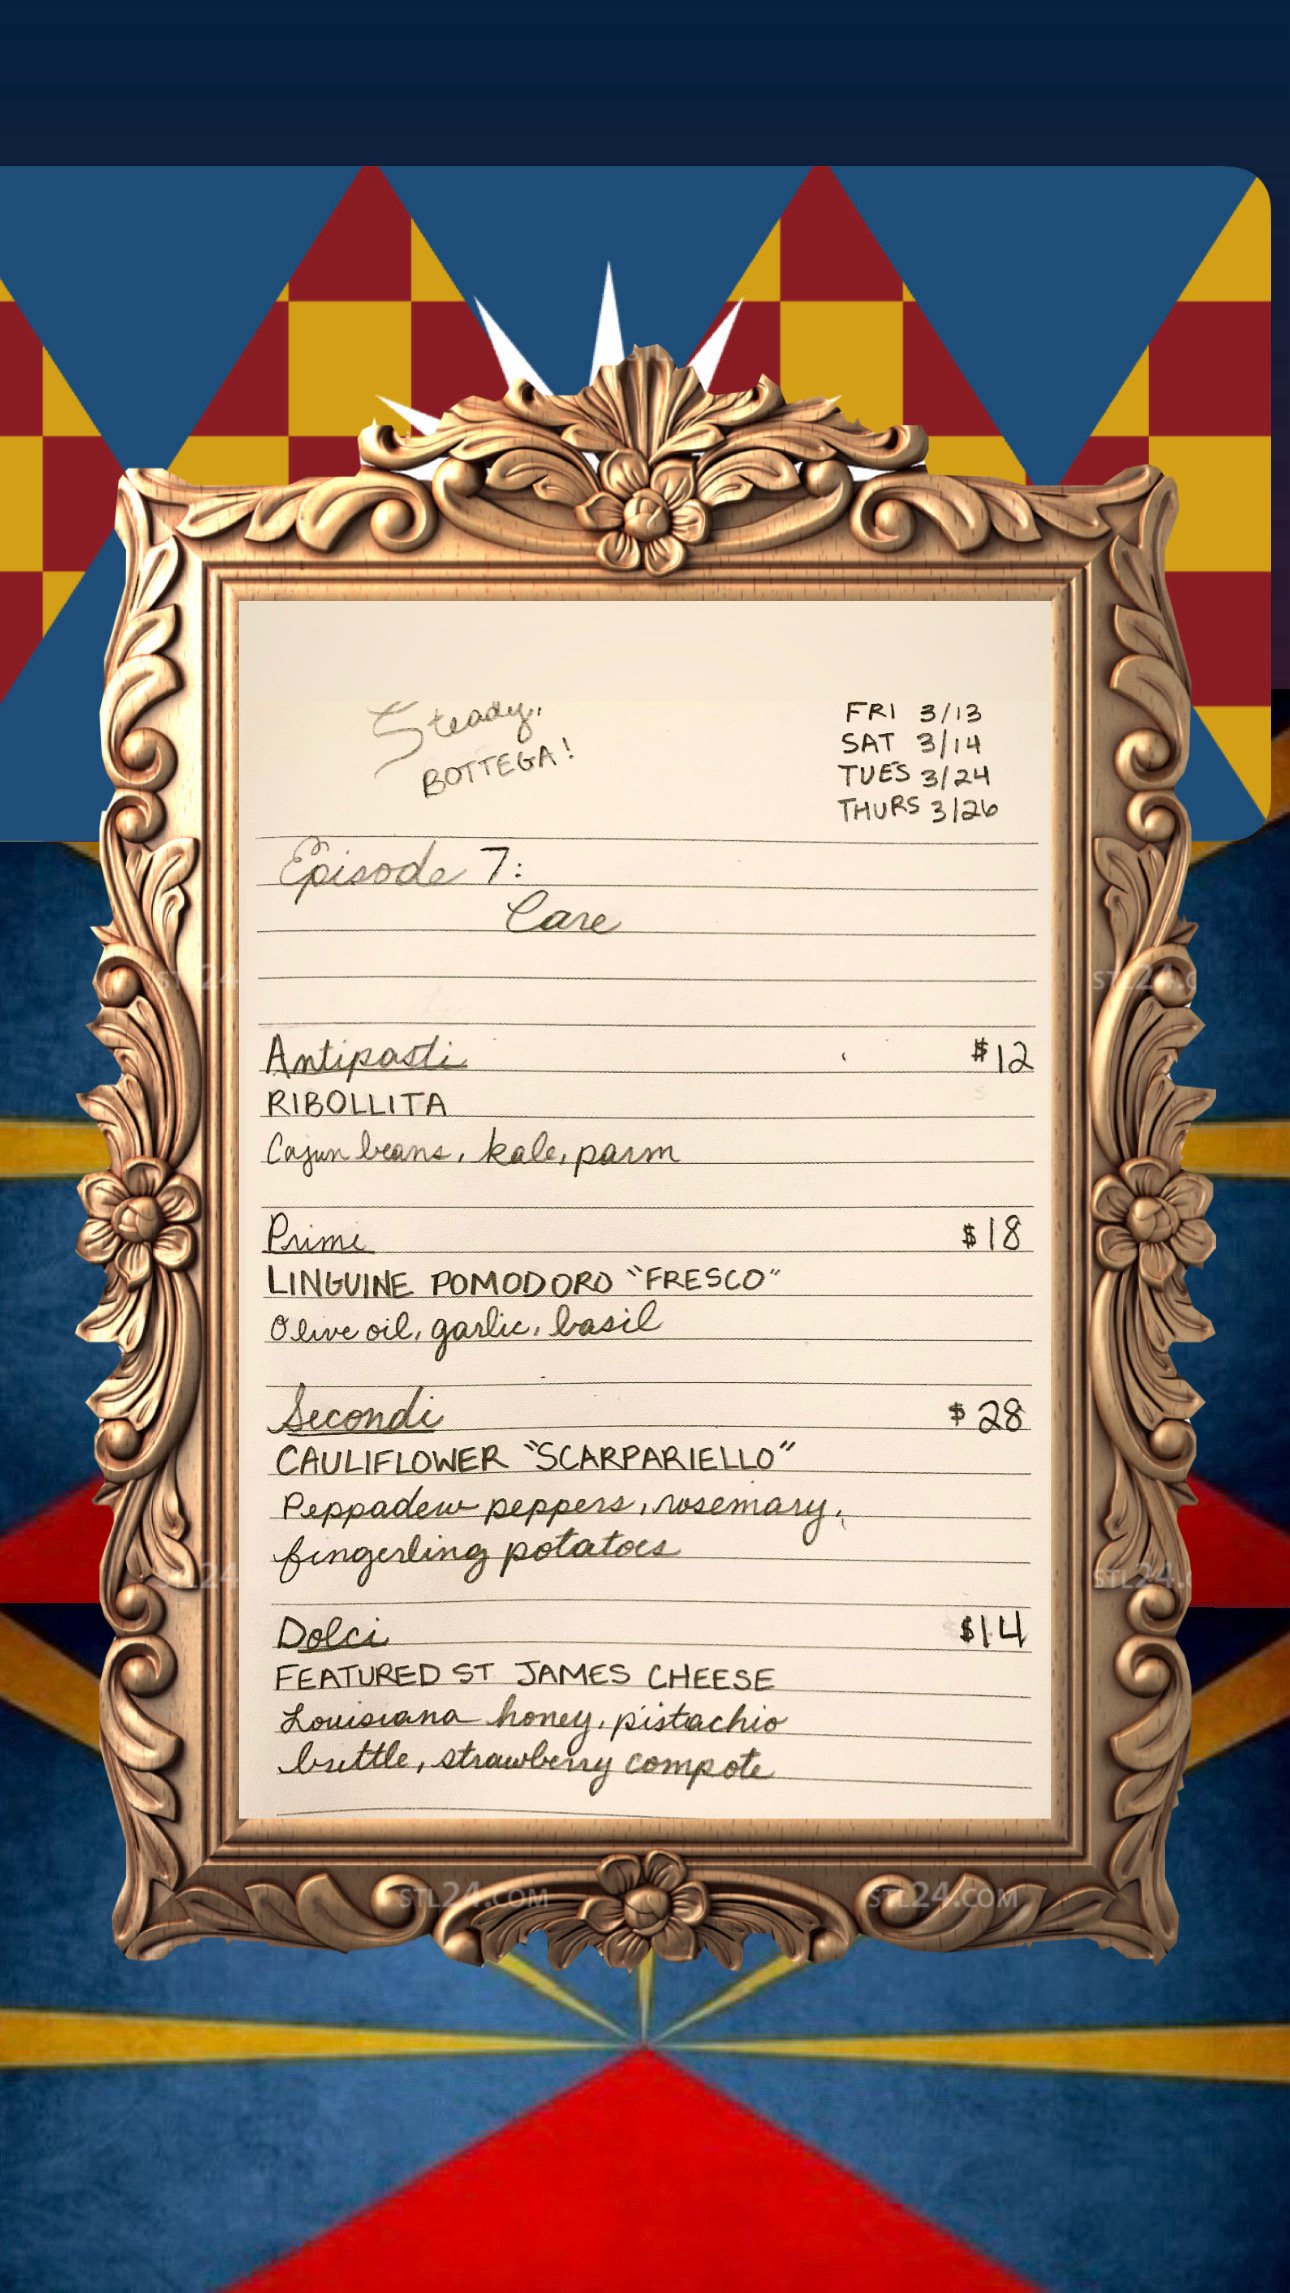 Steady,
BOTTEGA!
FRI 3/13
SAT 3/14
TUES 3/24
THURS 3/26
Episode 7:
Care
Antipasti $12
RIBOLLITA
Cajun beans, kale, parm
Primi $18
LINGUINE POMODORO "FRESCO"
Olive oil, garlic, basil
Secondi $28
CAULIFLOWER "SCARPARIELLO"
Peppadew peppers, rosemary,
fingerling potatoes
Dolci $14
FEATURED ST JAMES CHEESE
Louisiana honey, pistachio
brittle, strawberry compote
STL24.COM
STL24.COM